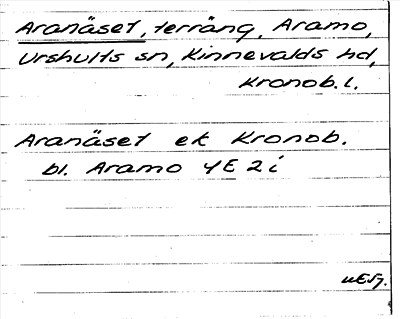 Aranäset, terräng, Aramo,
Urshults sn, Kinnevalds hd,
Kronob. l.
Aranäset ek Kronob.
bl. Aramo 4E 2 i